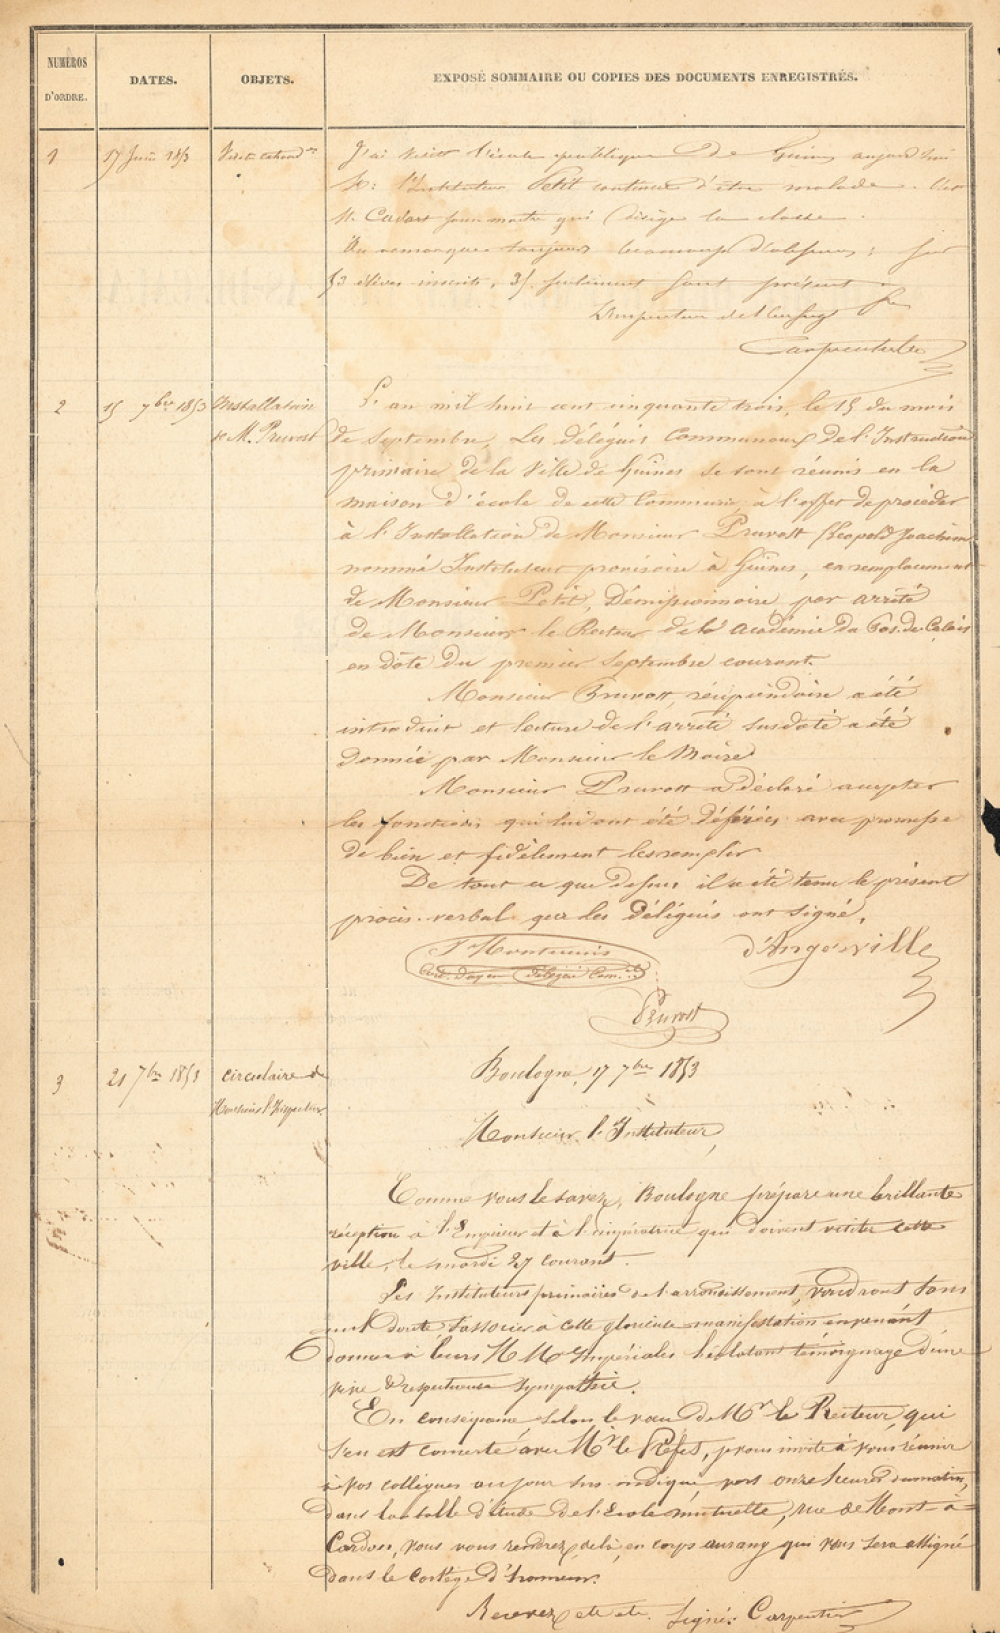 NUMÉROS
D'ORDRE.
DATES.
OBJETS.
EXPOSÉ SOMMAIRE OU COPIES DES DOCUMENTS ENREGISTRÉS.
1
17 Juin 1853
J'ai visité l'école publique de Guines aujourd'hui
L'Instituteur Petit continue d'être malade. C'est
M. Cadart sous-maitre qui dirige la classe.
On remarque toujours beaucoup d'absences ; sur
53 élèves inscrits, 35 seulement sont présents
L'Inspecteur de l'
Carpentier
2
15 7bre 1853
Installation
de M. Pruvost
L'an mil huit cent cinquante trois, le 15 du mois
de Septembre, Les délégués Communaux de l'Instruction
primaire de la Ville de Guînes se sont réunis en la
maison d'école de cette Commune, à l'effet de procéder
à l'Installation de Monsieur Pruvost (Léopold Joachim
nommé Instituteur provisoire à Guînes, en remplacement
de Monsieur Petit, Démissionnaire, par arrêté
de Monsieur le Recteur de l'académie du Pas-de-Calais
en date du premier Septembre courant.
Monsieur Pruvost, récipiendaire a été
introduit et lecture de l'arrêté susdaté a été
donnée par Monsieur le Maire
Monsieur Pruvost a déclaré accepter
les fonctions qui lui ont été déférées avec promesse
de bien et fidèlement les remplir
De tout ce que dessus il a été tenu le présent
procès-verbal que les délégués ont signé.
Curé-Doyen délégué Com.al
d'Angerville
Pruvost
3
21 7bre 1853
circulaire de
Monsieur l'Inspecteur
Boulogne, 17 7bre 1853
Monsieur l'Instituteur,
Comme vous le savez, Boulogne prépare une brillante
réception à l'Empereur et à l'impératrice qui doivent visiter cette
ville, le mardi 27 courant.
Les Instituteurs primaires de l'arrondissement, voudront sans
nul doute s'associer à cette glorieuse manifestation en venant
donner à leurs M M Impériales l'éclatant témoignage d'une
vive & respectueuse sympathie.
En conséquence selon le vœu de Mr le Recteur, qui
s'en est concerté avec Mr le Préfet, je vous invite à vous réunir
à vos collègues au jour sus indiqué vers onze heures du matin,
dans la salle d'étude de l'Ecole mutuelle, rue de Mont-à-
Cardon, vous vous rendrez, de là, en corps au rang qui vous sera assigné
dans le cortège d'honneur.
Recevez etc etc. Signé: Carpentier